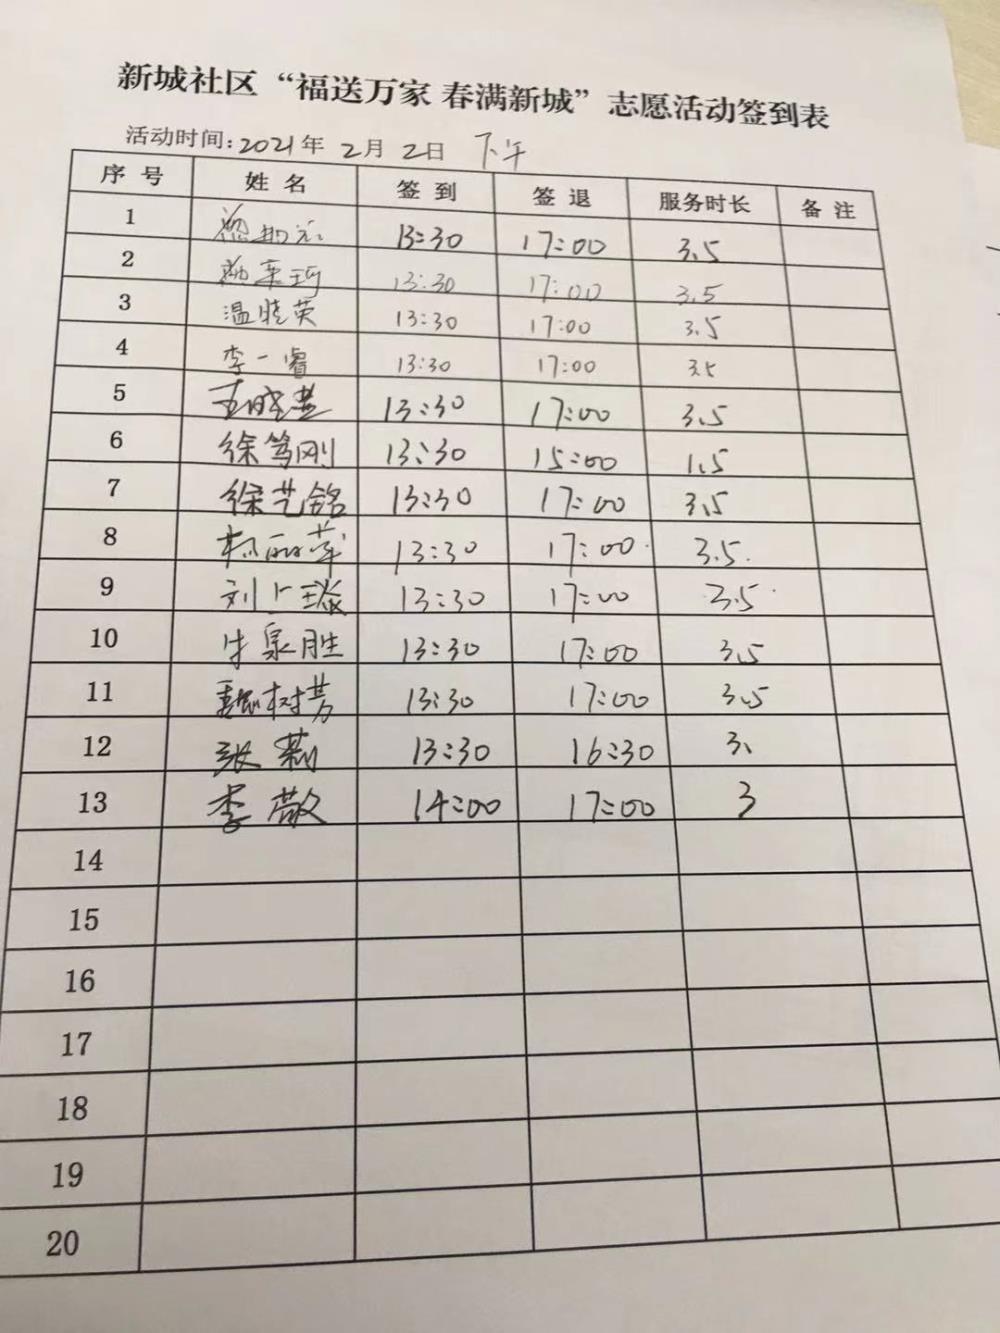 新城社区“福送万家 春满新城”志愿活动签到表
活动时间:2021年 2月 2日 下午
序号 姓名 签到 签退 服务时长 备注
1 13:30 17:00 3.5
2 13:30 17:00 3.5
3 温晓英 13:30 17:00 3.5
4 李一睿 13:30 17:00 3.5
5 13:30 17:00 3.5
6 徐笃刚 13:30 15:00 1.5
7 徐艺铭 13:30 17:00 3.5
8 13:30 17:00 3.5
9 13:30 17:00 3.5
10 牛泉胜 13:30 17:00 3.5
11 魏树芳 13:30 17:00 3.5
12 张莉 13:30 16:30 3.
13 李敬 14:00 17:00 3
14
15
16
17
18
19
20